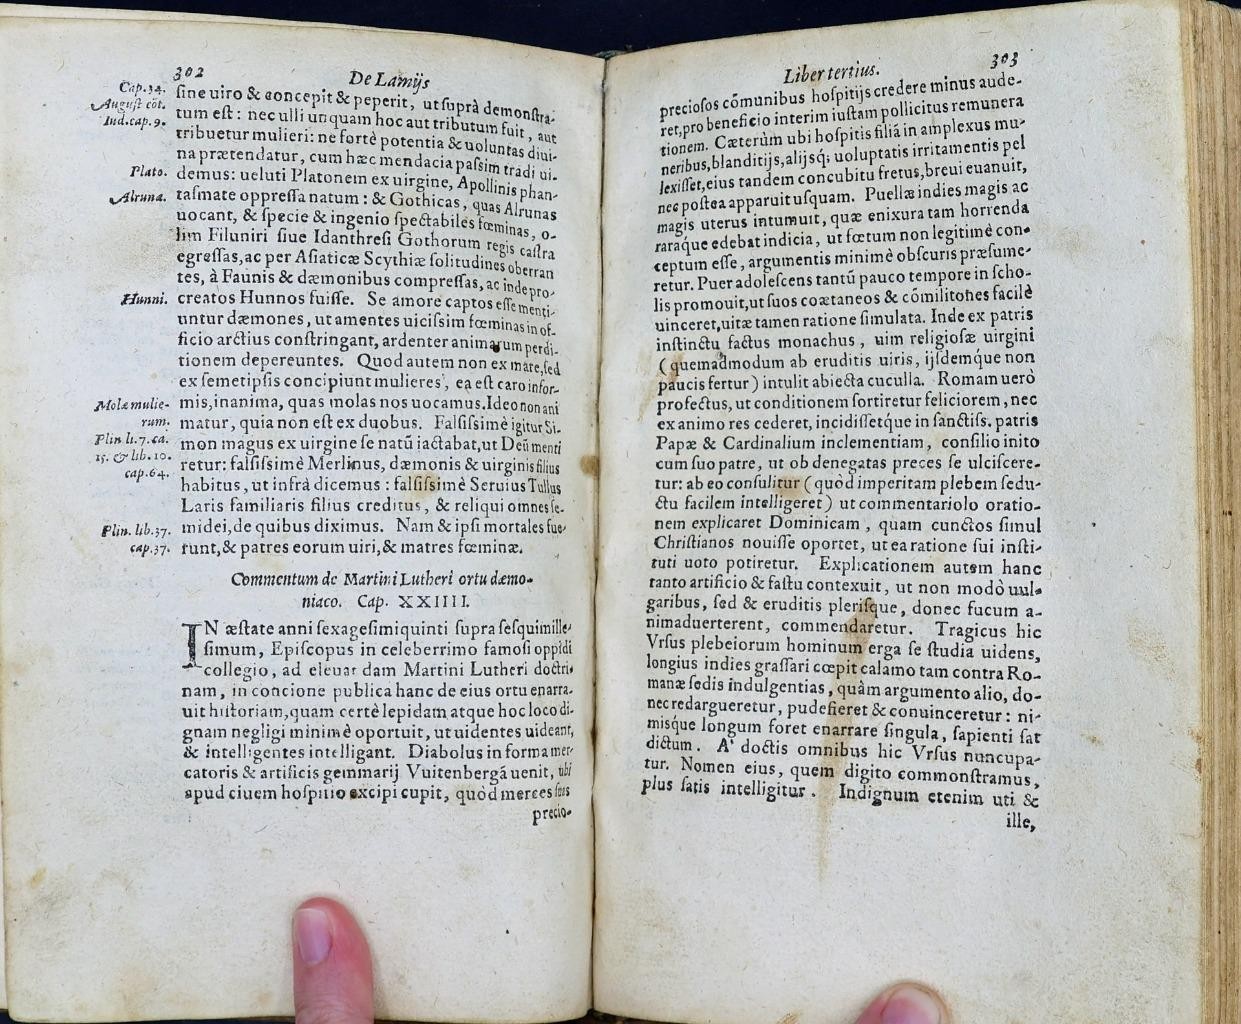 302
De Lamijs
Cap.34.
August cōt.
Iud.cap.9.
ſine uiro & concepit & peperit, ut ſuprà demonſtra-
tum eſt: nec ulli unquam hoc aut tributum fuit, aut
tribuetur mulieri: ne fortè potentia & uoluntas diui-
na prætendatur, cum hæc mendacia paſsim tradi ui-
Plato.
demus: ueluti Platonem ex uirgine, Apollinis phan-
Alruna.
taſmate oppreſſa natum: & Gothicas, quas Alrunas
uocant, & ſpecie & ingenio ſpectabiles fœminas, o-
lim Filuniri ſiue Idanthreſi Gothorum regis caſtra
egreſſas, ac per Aſiaticæ Scythiæ ſolitudines oberran
tes, à Faunis & dæmonibus compreſſas, ac inde pro-
Hunni.
creatos Hunnos fuiſſe. Se amore captos eſſe menti-
untur dæmones, ut amentes uiciſsim fœminas in of-
ficio arctius conſtringant, ardenter animarum perdi-
tionem depereuntes. Quod autem non ex mare, ſed
ex ſemetipſis concipiunt mulieres, ea eſt caro infor-
Molæ mulie-
rum.
mis, inanima, quas molas nos uocamus. Ideo non ani
matur, quia non eſt ex duobus. Falſiſsimè igitur Si-
Plin li.7.ca.
15. & lib.10.
cap.64.
mon magus ex uirgine ſe natū iactabat, ut Deū menti
retur: falſiſsimè Merlinus, dæmonis & uirginis filius
habitus, ut infrà dicemus: falſiſsimè Seruius Tullus
Laris familiaris filius creditus, & reliqui omnes ſe-
Plin. lib.37.
cap.37.
midei, de quibus diximus. Nam & ipſi mortales fue-
runt, & patres eorum uiri, & matres fœminæ.
Commentum de Martini Lutheri ortu dæmo-
niaco. Cap. XXIIII.
IN æſtate anni ſexageſimiquinti ſupra ſeſquimille-
ſimum, Epiſcopus in celeberrimo famoſi oppidi
collegio, ad eleuandam Martini Lutheri doctri-
nam, in concione publica hanc de eius ortu enarra-
uit hiſtoriam, quam certè lepidam atque hoc loco di-
gnam negligi minimè oportuit, ut uidentes uideant,
& intelligentes intelligant. Diabolus in forma mer-
catoris & artificis gemmarij Vuitenbergā uenit, ubi
apud ciuem hoſpitio excipi cupit, quòd merces ſuas
precio-
Liber tertius.
303
precioſos cōmunibus hoſpitijs credere minus aude-
ret, pro beneficio interim iuſtam pollicitus remunera
tionem. Cæterùm ubi hoſpitis filiā in amplexus mu-
neribus, blanditijs, alijsq; uoluptatis irritamentis pel
lexiſſet, eius tandem concubitu fretus, breui euanuit,
nec poſtea apparuit uſquam. Puellæ indies magis ac
magis uterus intumuit, quæ enixura tam horrenda
raraque edebat indicia, ut fœtum non legitimè con-
ceptum eſſe, argumentis minimè obſcuris præſume-
retur. Puer adoleſcens tantū pauco tempore in ſcho-
lis promouit, ut ſuos coætaneos & cōmilitones facilè
uinceret, uitæ tamen ratione ſimulata. Inde ex patris
inſtinctu factus monachus, uim religioſæ uirgini
(quemadmodum ab eruditis uiris, ijſdemque non
paucis fertur) intulit abiecta cuculla. Romam uerò
profectus, ut conditionem ſortiretur feliciorem, nec
ex animo res cederet, incidiſſetque in ſanctiſs. patris
Papæ & Cardinalium inclementiam, conſilio inito
cum ſuo patre, ut ob denegatas preces ſe ulciſcere-
tur: ab eo conſulitur (quòd imperitam plebem ſedu-
ctu facilem intelligeret) ut commentariolo oratio-
nem explicaret Dominicam, quam cunctos ſimul
Chriſtianos nouiſſe oportet, ut ea ratione ſui inſti-
tuti uoto potiretur. Explicationem autem hanc
tanto artificio & faſtu contexuit, ut non modò uul-
garibus, ſed & eruditis pleriſque, donec fucum a-
nimaduerterent, commendaretur. Tragicus hic
Vrſus plebeiorum hominum erga ſe ſtudia uidens,
longius indies graſſari cœpit calamo tam contra Ro-
manæ ſedis indulgentias, quàm argumento alio, do-
nec redargueretur, pudefieret & conuinceretur: ni-
miſque longum foret enarrare ſingula, ſapienti ſat
dictum. A' doctis omnibus hic Vrſus nuncupa-
tur. Nomen eius, quem digito commonſtramus,
plus ſatis intelligitur. Indignum etenim uti &
ille,